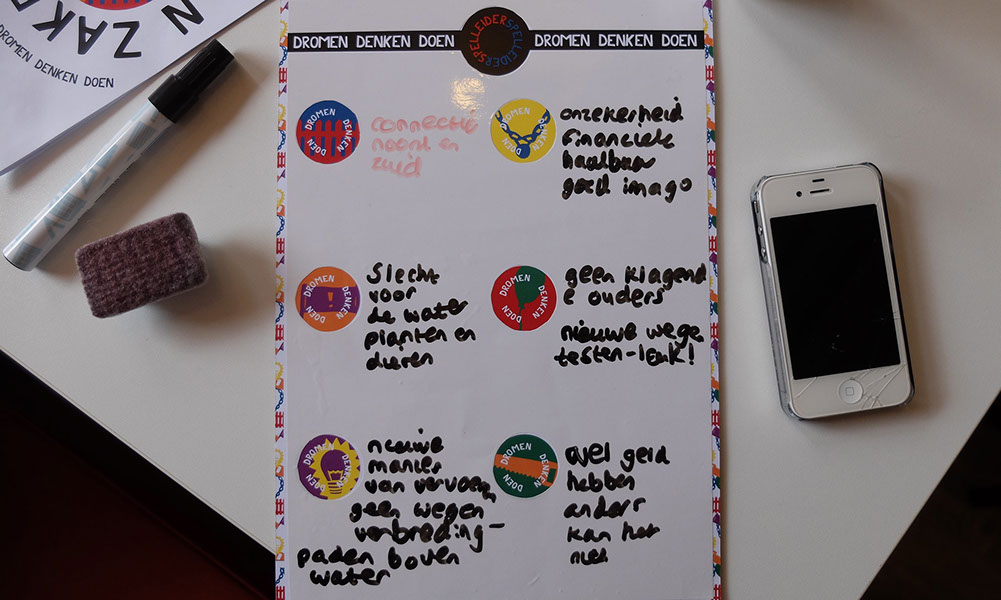 N ZAK
DROMEN DENKEN DOEN
DROMEN DENKEN DOEN
SPELLEIDERSPELLEIDER
DROMEN DENKEN DOEN
DROMEN DENKEN DOEN
connectie
noord en
zuid
DROMEN DENKEN DOEN
onzekerheid
financiele
haalbaar
goed imago
DROMEN DENKEN DOEN
Slecht
voor
de water
planten en
dieren
DROMEN DENKEN DOEN
geen klagend
e ouders
nieuwe wege
testen-leuk!
DROMEN DENKEN DOEN
nieuwe
manier
van vervoer
geen wegen
verbreding-
paden boven
water
DROMEN DENKEN DOEN
wel geld
hebben
anders
kan het
niet